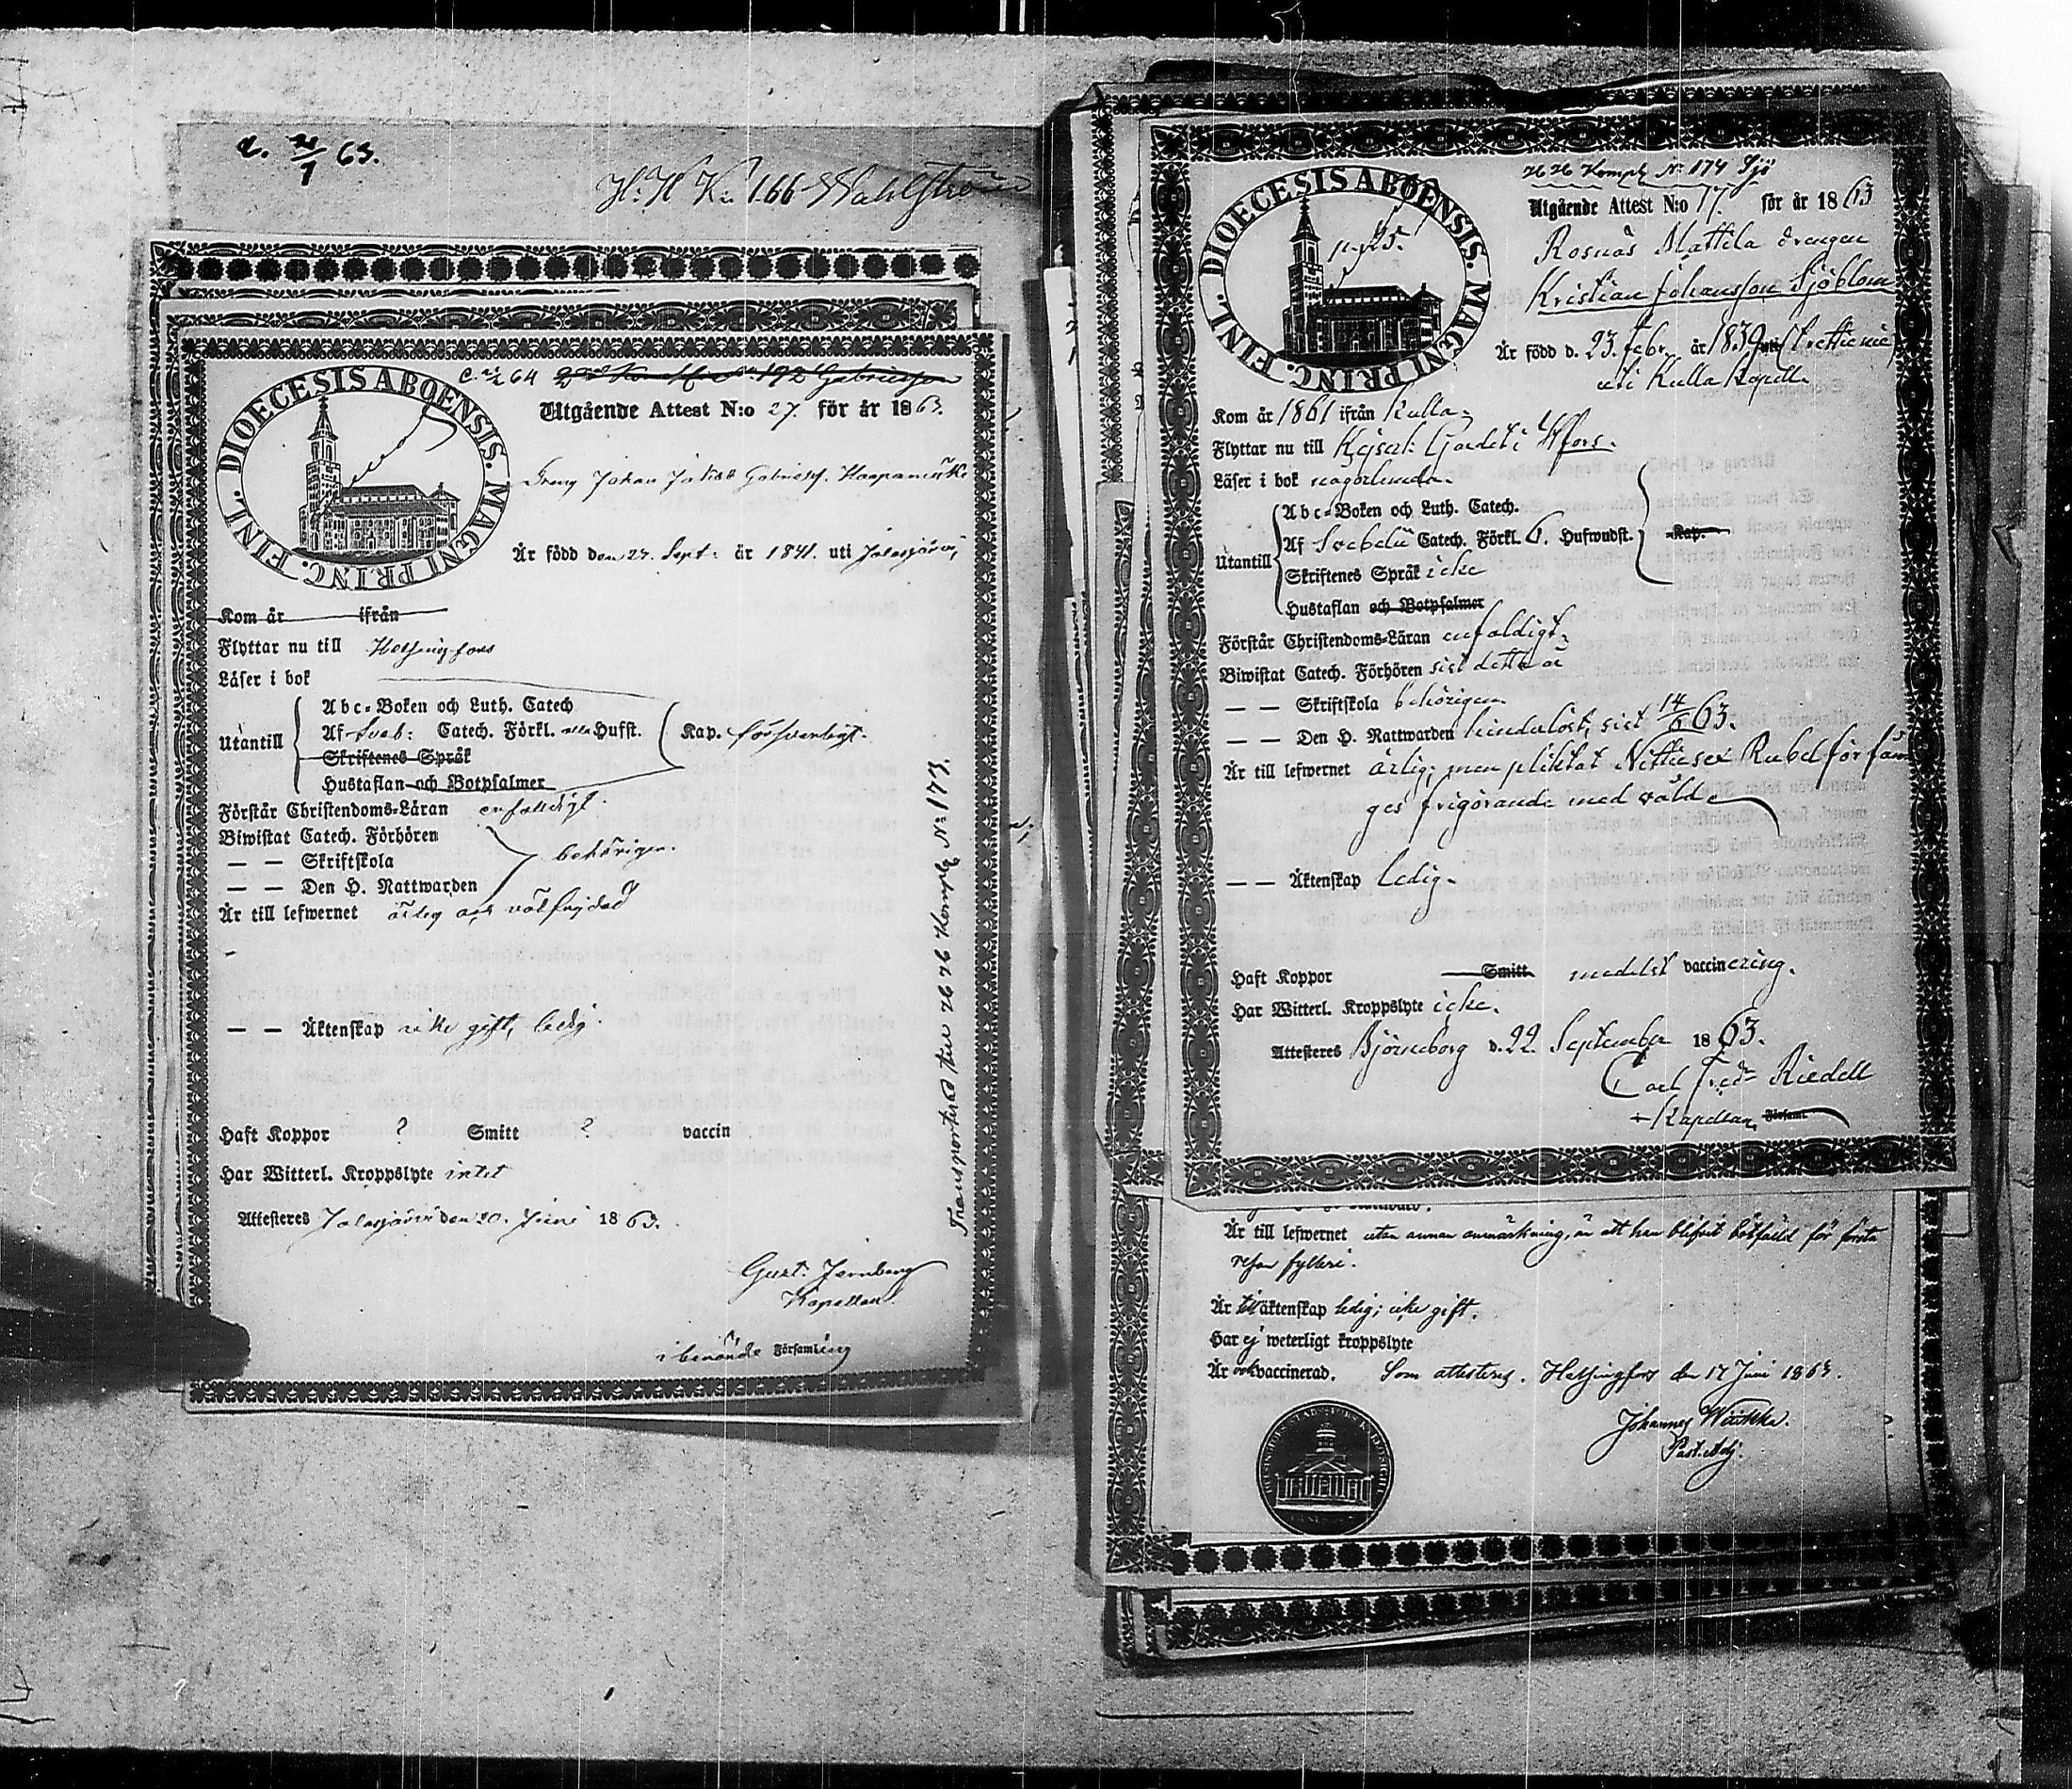 63.
H. K. K. 166 Wahlström
C. 64
DIOECESIS ABOENSIS. MAGNI PRINC. FINL.
Utgående Attest N:o 27. för år 1863.
Dreng Johan Gabrielss. Haapamäki
Är född den 27. Sept. år 1841. uti Jalasjärvi
Kom år ifrån
Flyttar nu till Helsingfors
Läser i bok
Utantill
Abc-Boken och Luth. Catech
Af Sveb: Catech. Förkl. alla Hufst.
Skriftenes Språk
Hustaflan och Botpsalmer
Kap. försvarligt.
Förstår Christendoms-Läran enfaldigt.
Biwistat Catech. Förhören
— — Skriftskola
— — Den H. Nattwarden
behörigen.
Är till lefwernet ärlig och välfrejdad
— — Äktenskap icke gift, ledig.
Haft Koppor ? Smitt ? vaccin
Har Witterl. Kroppslyte intet
Attesteres Jalasjärvi den 20. Juni 1863.
Gust. Jernberg
Kapellan.
i berörde Församling
Transporterad till Komplg No 173.
Komplg No 174 Sjö
DIOECESIS ABOENSIS. MAGNI PRINC. FINL.
p. 125.
Utgående Attest N:o 17. för år 1863
Rosnäs Mattila drengen
Kristian Johansson Sjöblom
Är född d. 23. Febr. år 1839 (trettienie)
uti Kulla Kapell.
Kom år 1861 ifrån Kulla.
Flyttar nu till Kejserl. Gardet i Hfors.
Läser i bok någorlunda.
Utantill
Abc-Boken och Luth. Catech.
Af Svebelii Catech. Förkl. 6. Hufwudst.
Skriftenes Språk icke
Hustaflan och Botpsalmer
Kap.
Förstår Christendoms-Läran enfaldigt.
Biwistat Catech. Förhören sist detta år
— — Skriftskola behörigen
— — Den H. Nattwarden hinderlöst, sist 14/6 63.
Är till lefwernet ärlig; men pliktat Nittiosex Rubel för fån
ges frigörande med våld.
— — Äktenskap ledig.
Haft Koppor Smitt medelst vaccinering.
Har Witterl. Kroppslyte icke.
Attesteres Björneborg d. 22. September 1863.
Carl Fredr Riedell
Kapellan. Församl
Är till lefwernet utan annan anmärkning, än att han blifvit bötfälld för första
resan fylleri.
Är till äktenskap ledig; icke gift.
Har ej weterligt kroppslyte
Är och vaccinerad. Som attesteres. Helsingfors den 17 Juni 1863.
Johannes
Past. Adj.